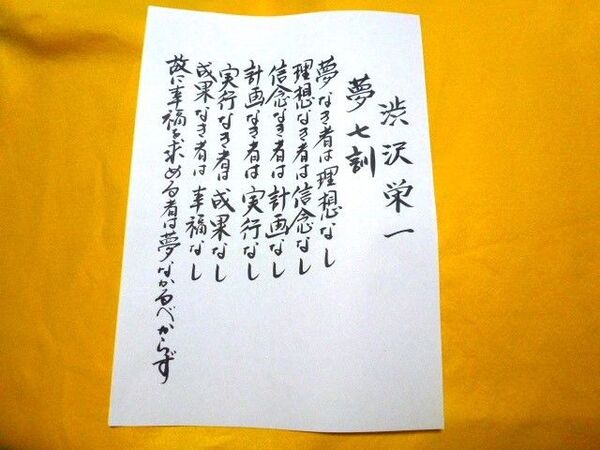 渋沢栄一
夢七訓
夢なき者は理想なし
理想なき者は信念なし
信念なき者は計画なし
計画なき者は実行なし
実行なき者は成果なし
成果なき者は幸福なし
故に幸福を求める者は夢なかるべからず